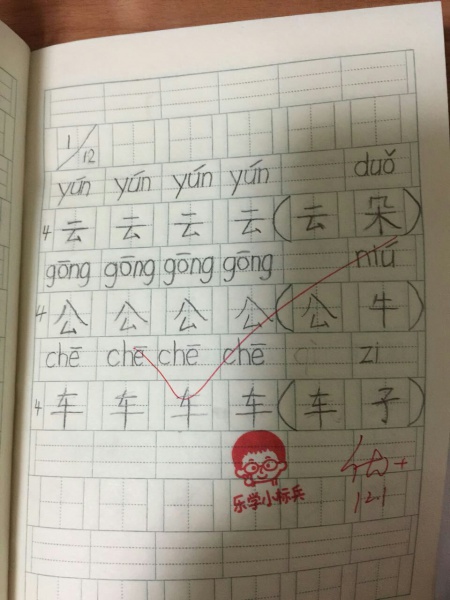 1/12
yún yún yún yún duǒ
4 云 云 云 云 (云 朵)
gōng gōng gōng gōng niú
4 公 公 公 公 (公 牛)
chē chē chē chē zi
4 车 车 车 车 (车 子)
乐学小标兵
优+
12.1